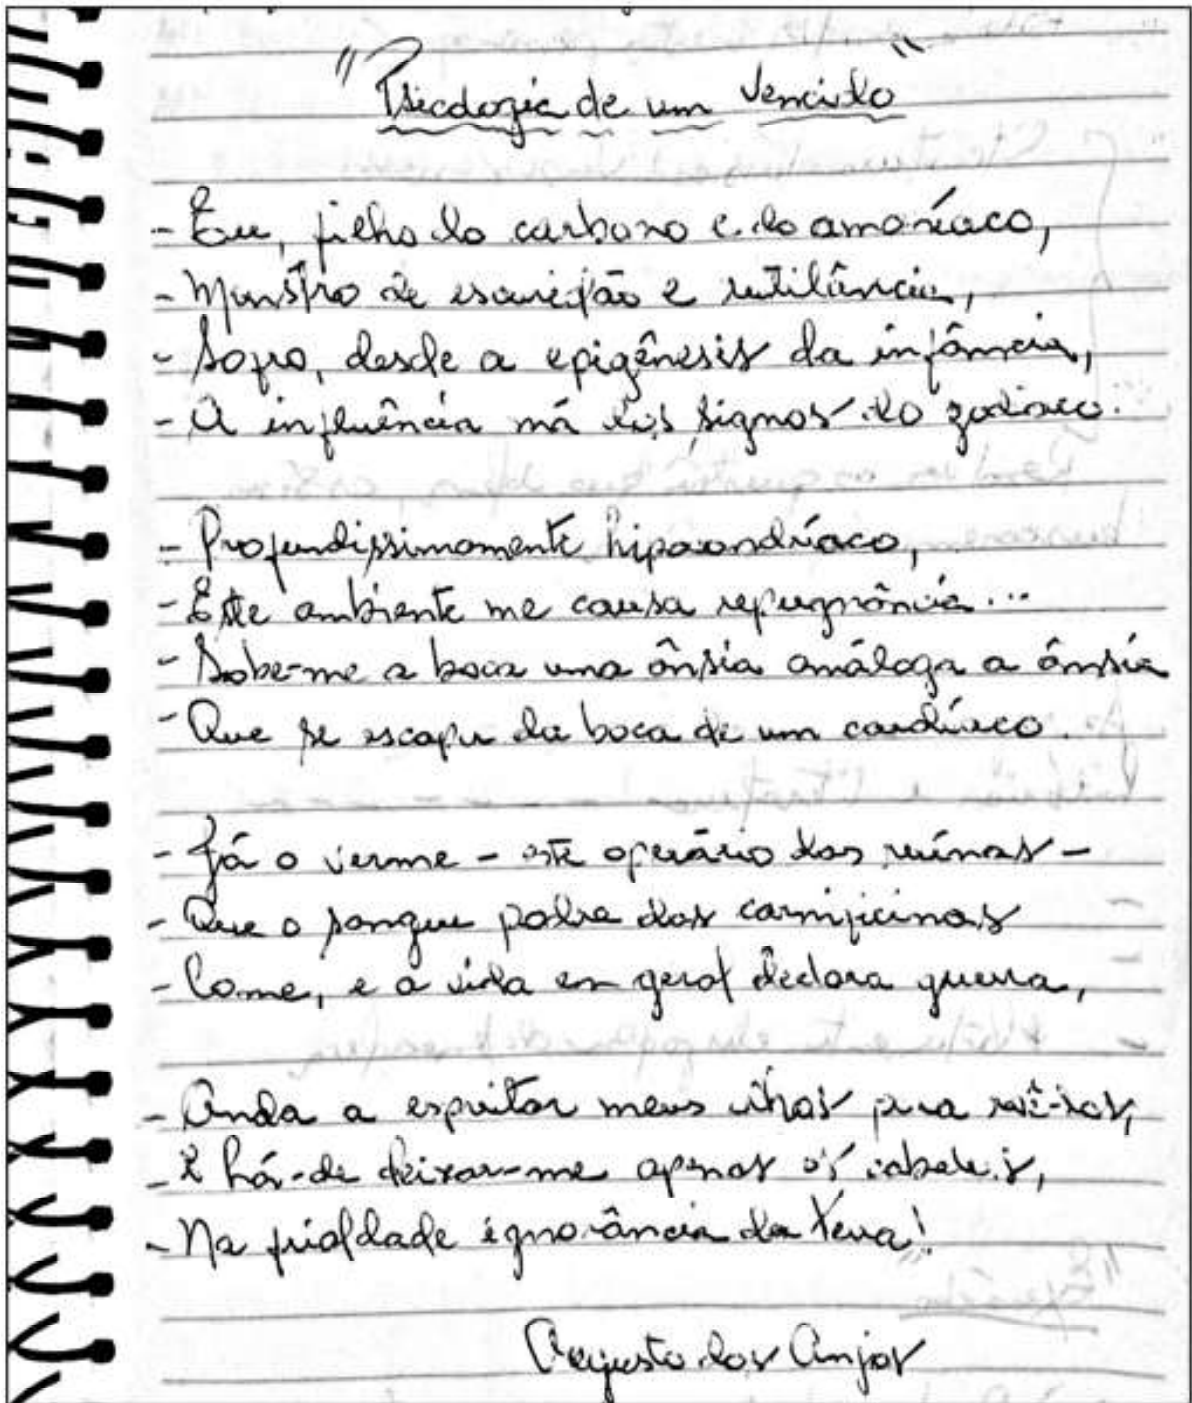 "Psicologia de um Vencido"
- Eu, filho do carbono e do amoníaco,
- Monstro de escuridão e rutilância,
- Sofro, desde a epigênesis da infância,
- A influência má dos signos do zodíaco.
- Profundissimamente hipocondríaco,
- Este ambiente me causa repugnância...
- Sobe-me a boca uma ânsia análoga a ânsia
- Que se escapa da boca de um cardíaco.
- Já o verme - este operário das ruínas -
- Que o sangue podre das carnificinas
- Come, e a vida em geral declara guerra,
- Anda a espreitar meus olhos para roê-los,
- E há-de deixar-me apenas os cabelos,
- Na frialdade ignorância da terra!
Augusto dos Anjos